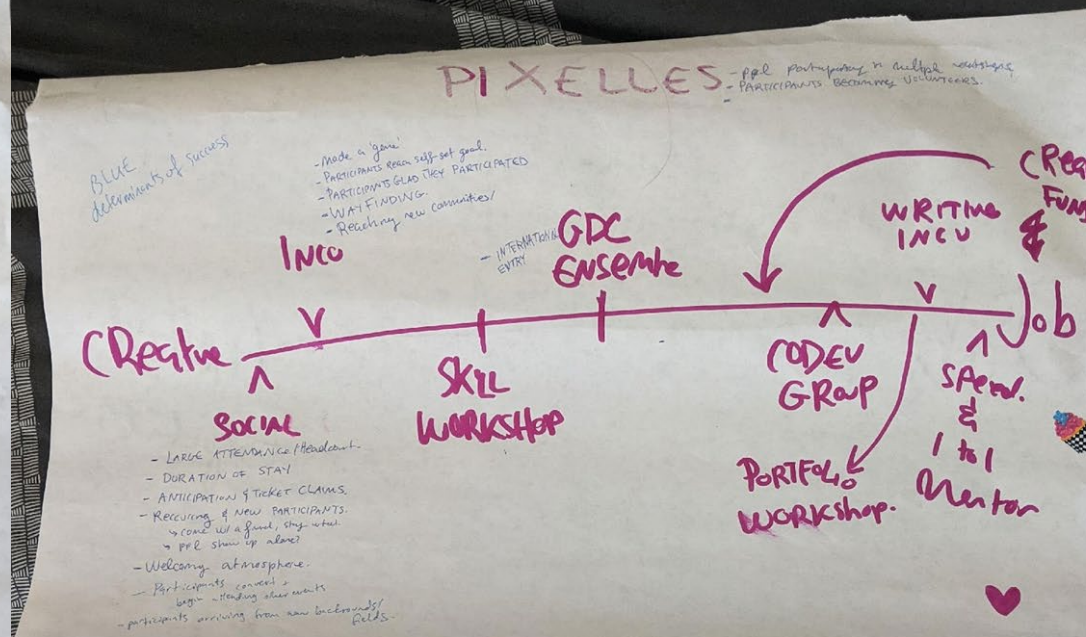 PIXELLES
- ppl participating in multiple workshops
- PARTICIPANTS BECOMING VOLUNTEERS.
-
BLUE
determinants of success
- Made a 'game'
- PARTICIPANTS REACH self-set goal.
- PARTICIPANTS GLAD THEY PARTICIPATED
- WAYFINDING.
- Reaching new communities/
INCU
- INTERNATIONAL
ENTRY
GDC
ENSEMBLE
WRITING
INCU
CRea
FUN
&
CReative
Job
SOCIAL
SKILL
WORKSHOP
CODEV
GROUP
Speed.
&
1 to 1
Mentor
PORTFOLIO
WORKSHOP.
- LARGE ATTENDANCE/Headcount.
- DURATION OF STAY
- ANTICIPATION & TICKET CLAIMS.
- Reccuring & NEW PARTICIPANTS.
↳ come w/ a friend, stay
↳ ppl show up alone?
- Welcoming atmosphere.
- Participants convert &
begin attending other events
- participants arriving from new backgrounds/
fields.